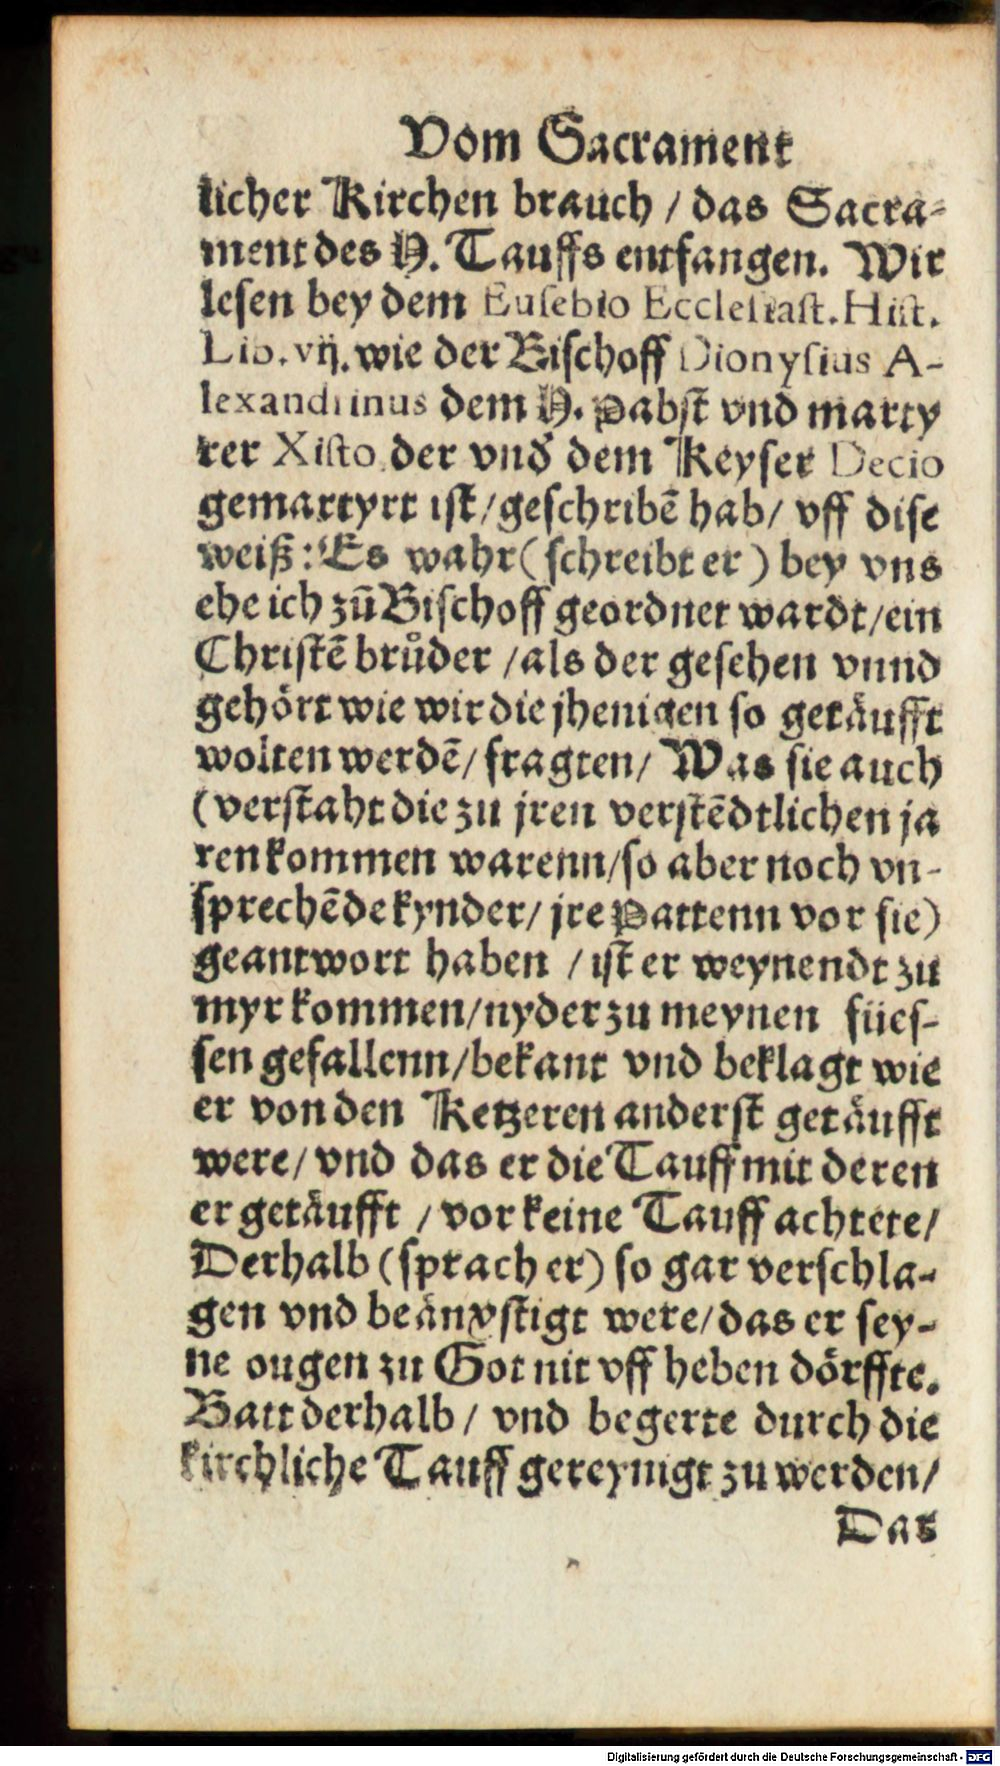 Vom Sacrament
licher Kirchen brauch / das Sacra-
ment des H. Tauffs entfangen. Wir
lesen bey dem Eusebio Ecclesiast. Hist.
Lib. vij. wie der Bischoff Dionysius A-
lexandrinus dem H. Pabst vnd marty
rer Xisto der vnd̕ dem Keyser Decio
gemartyrt ist / geschribē hab / vff dise
weiß: Es wahr ( schreibt er ) bey vns
ehe ich zū Bischoff geordnet wardt / ein
Christē brůder / als der gesehen vnnd
gehört wie wir die jhenigen so getäufft
wolten werdē / fragten / Was sie auch
(verstaht die zu jren verstēdtlichen ja
ren kommen warenn / so aber noch vn-
sprechēde kynder / jre Pattenn vor sie)
geantwort haben / ist er weynendt zu
myr kommen / nyder zu meynen fües-
sen gefallenn / bekant vnd beklagt wie
er von den Ketzeren anderst getäufft
were / vnd das er die Tauff mit deren
er getäufft / vor keine Tauff achtete /
Derhalb ( sprach er ) so gar verschla-
gen vnd beängstigt were / das er sey-
ne ougen zu Got nit vff heben dörffte.
Batt derhalb / vnd begerte durch die
kirchliche Tauff gereynigt zu werden /
Das
Digitalisierung gefördert durch die Deutsche Forschungsgemeinschaft - DFG